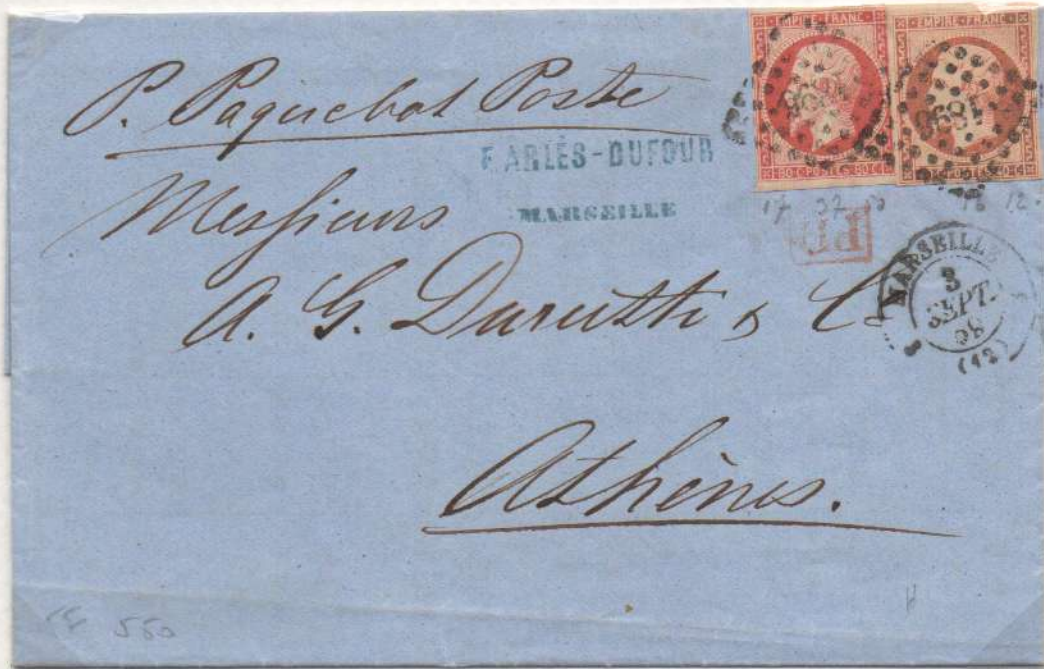 EMPIRE FRANC
EMPIRE FRANC
80 C POSTES 80 C
POSTES 80 C
1896
P. Paquebot Poste
F. ARLÈS-DUFOUR
MARSEILLE
PD
Messieurs
A. G. Durutti & Co
MARSEILLE
3
SEPT.
58
(12)
Athènes.
550